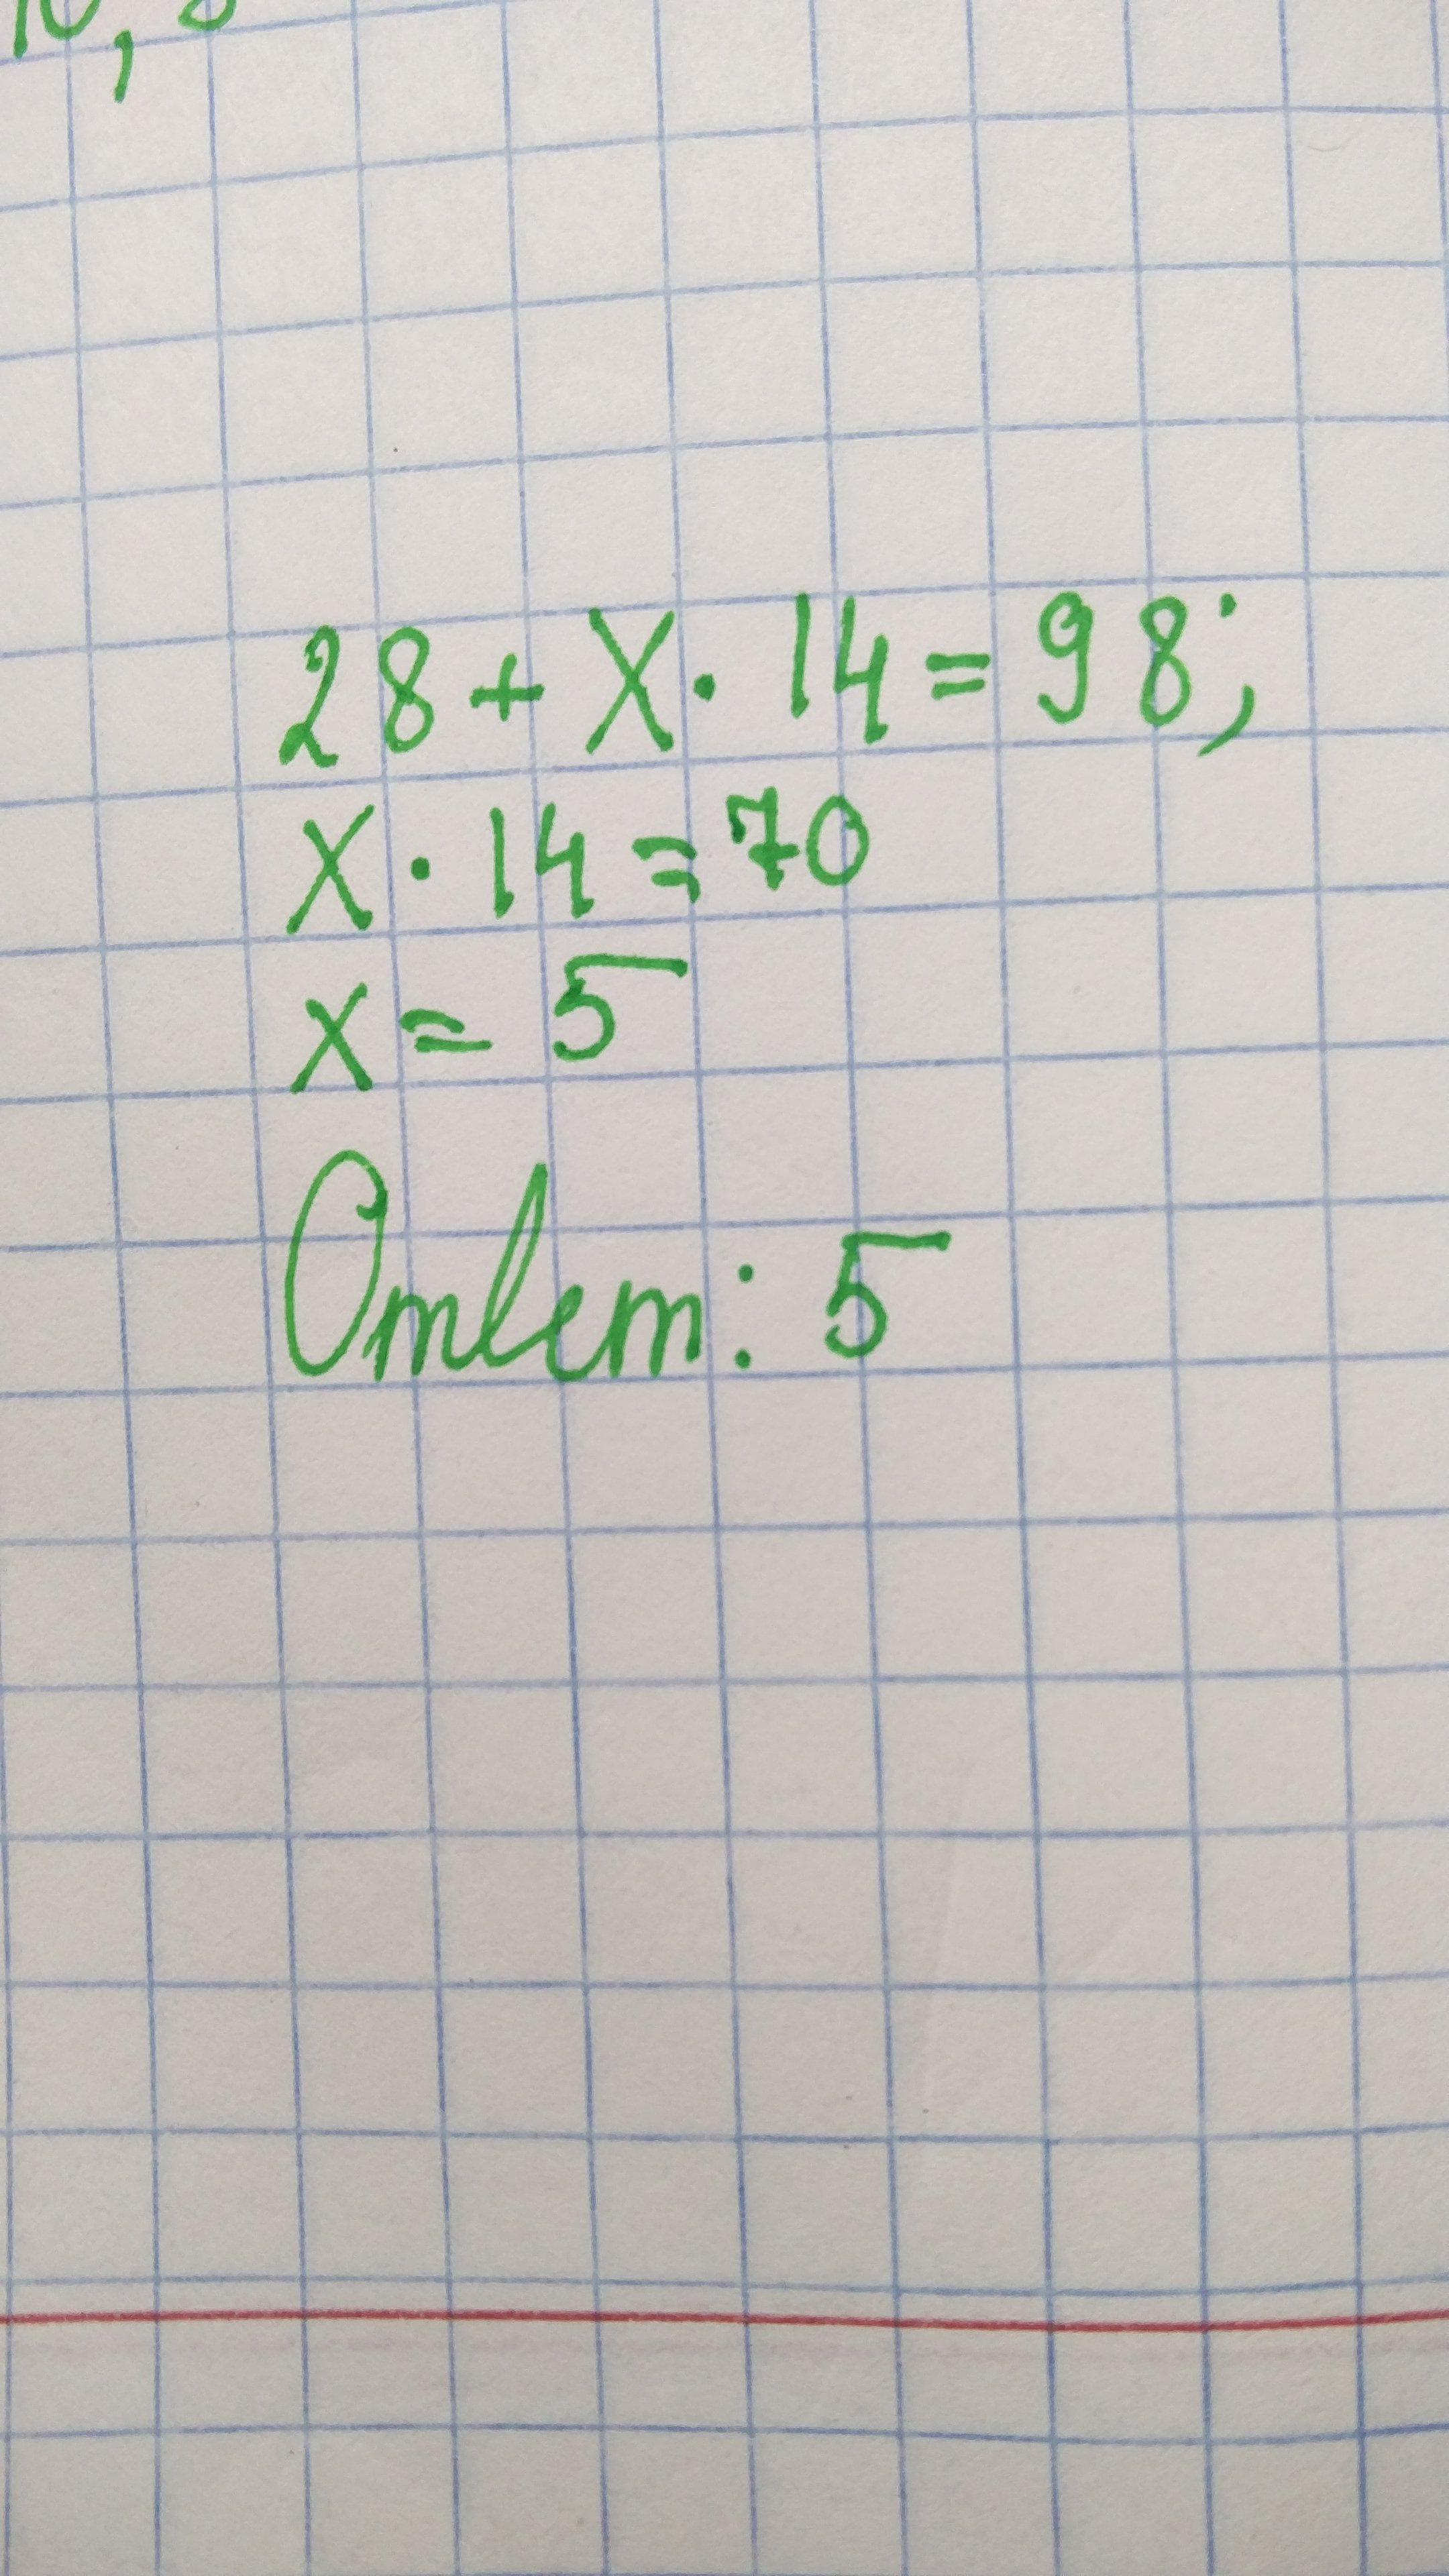 28 + X · 14 = 98;
X · 14 = 70
x = 5
Ответ: 5